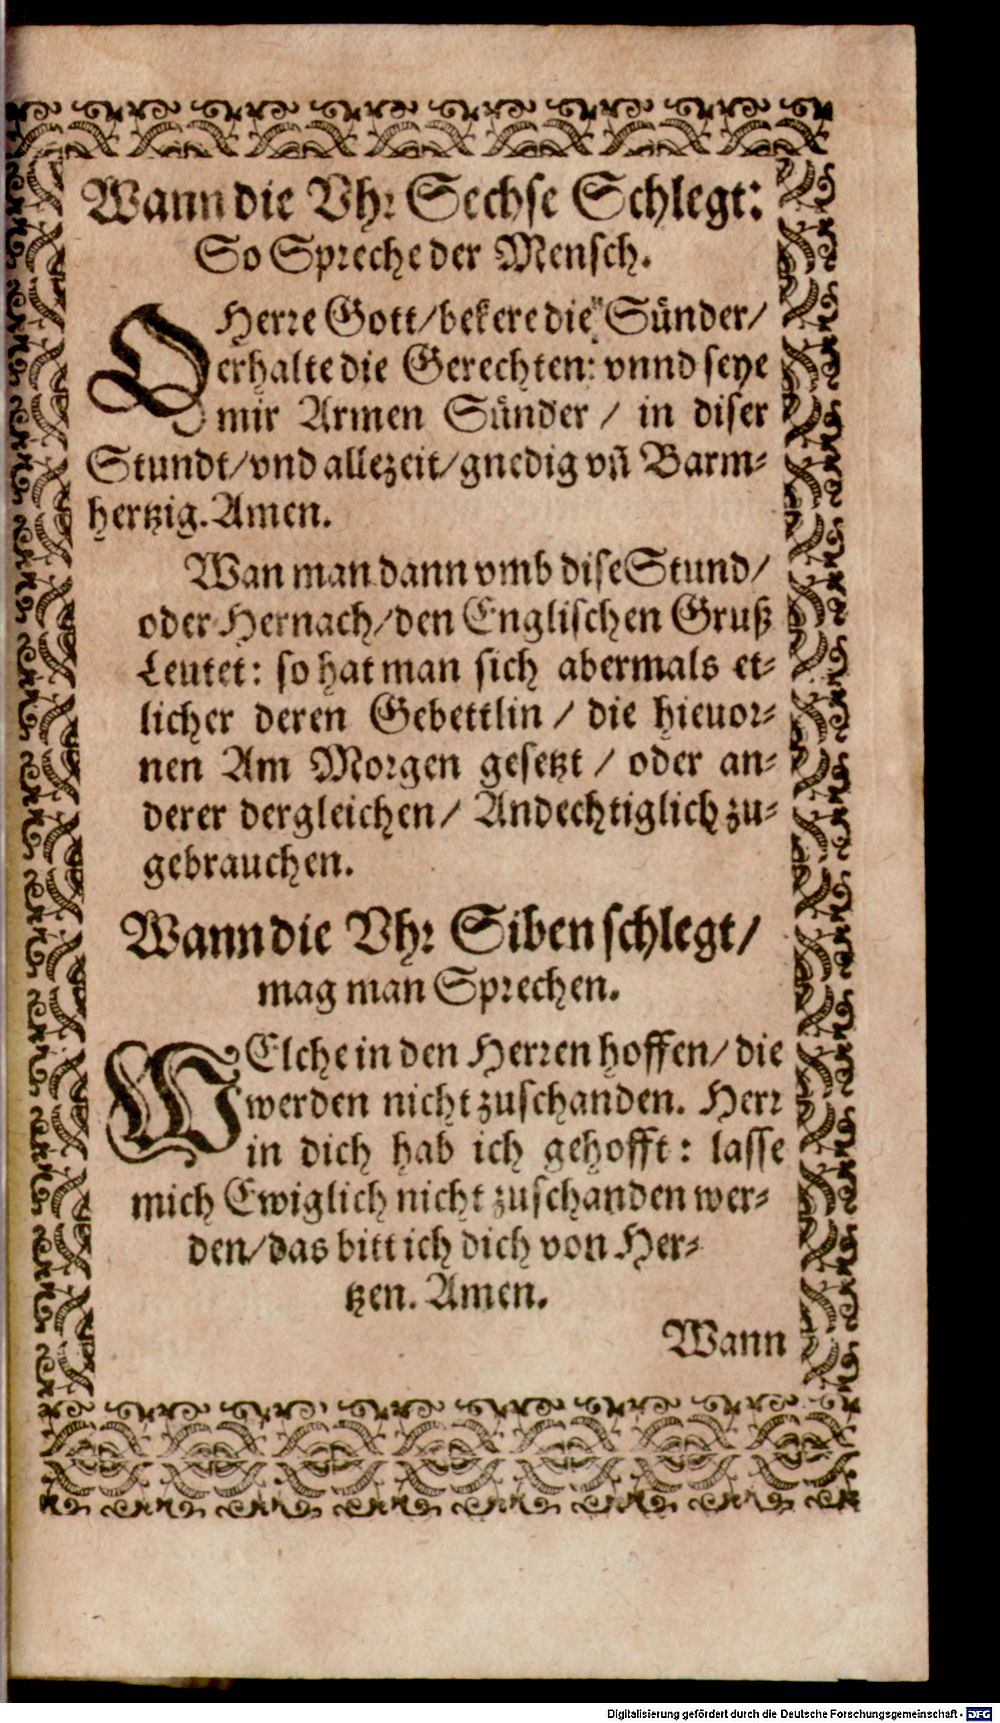 Wann die Vhr Sechse Schlegt:
So Spreche der Mensch.
O Herre Gott/ bekere die Sünder/
erhalte die Gerechten: vnnd seye
mir Armen Sünder / in diser
Stundt/ vnd allezeit/ gnedig vñ Barm-
hertzig. Amen.
Wan man dann vmb dise Stund/
oder Hernach/ den Englischen Gruß
Leutet: so hat man sich abermals et-
licher deren Gebettlin / die hieuor-
nen Am Morgen gesetzt / oder an-
derer dergleichen/ Andechtiglich zu-
gebrauchen.
Wann die Vhr Siben schlegt/
mag man Sprechen.
WElche in den Herren hoffen/ die
werden nicht zuschanden. Herr
in dich hab ich gehofft: lasse
mich Ewiglich nicht zuschanden wer-
den/ das bitt ich dich von Her-
tzen. Amen.
Wann
Digitalisierung gefördert durch die Deutsche Forschungsgemeinschaft - DFG